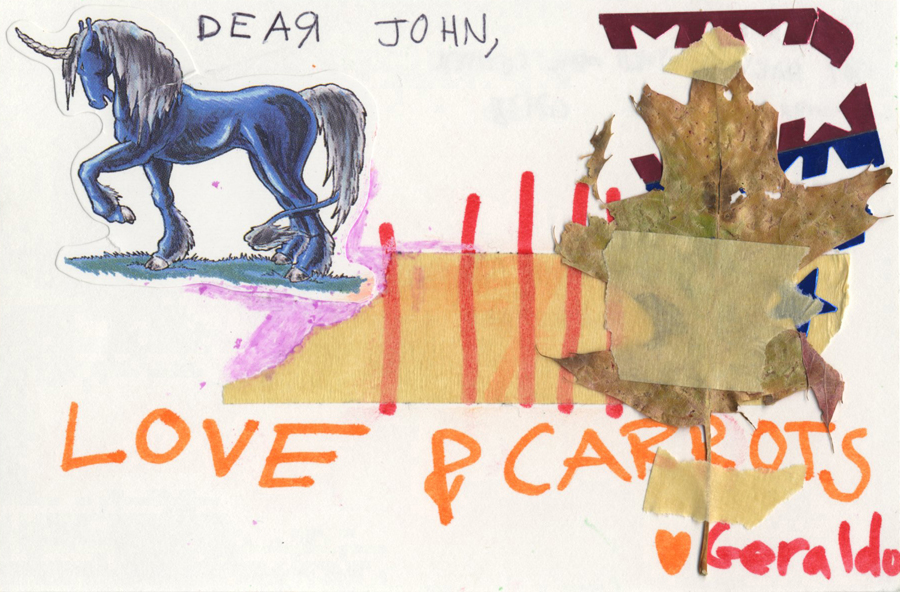 DEAR JOHN,
LOVE & CARROTS
♥ Geraldo